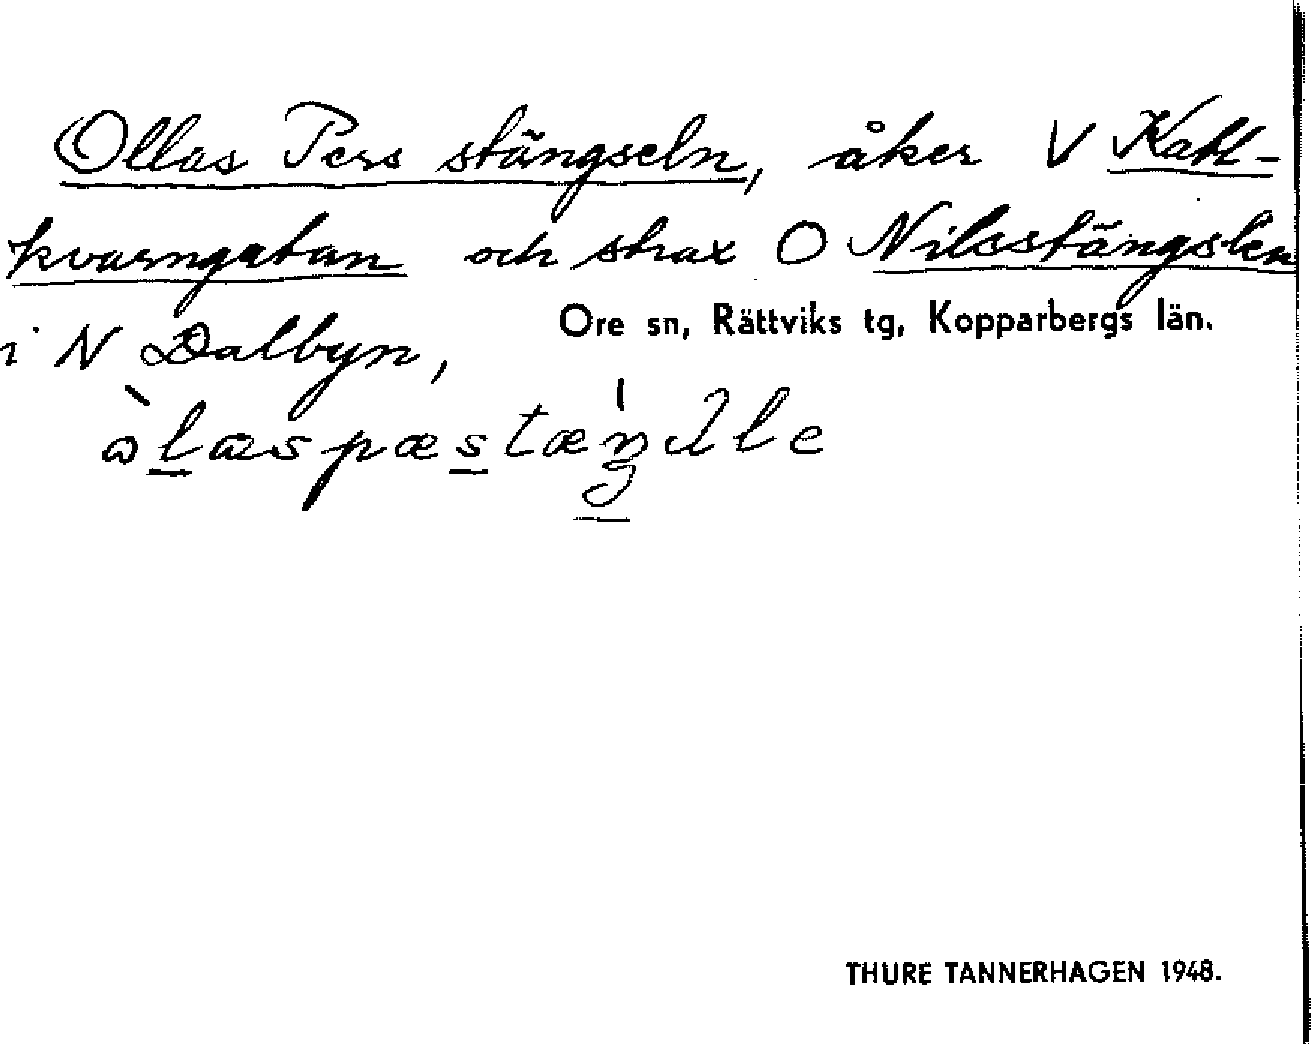 Ollas Pers stängseln, åker V Katt-
kvarngatan och strax O Nilsstängslen
i N Dalbyn,
Ore sn, Rättviks tg, Kopparbergs län.
THURE TANNERHAGEN 1948.